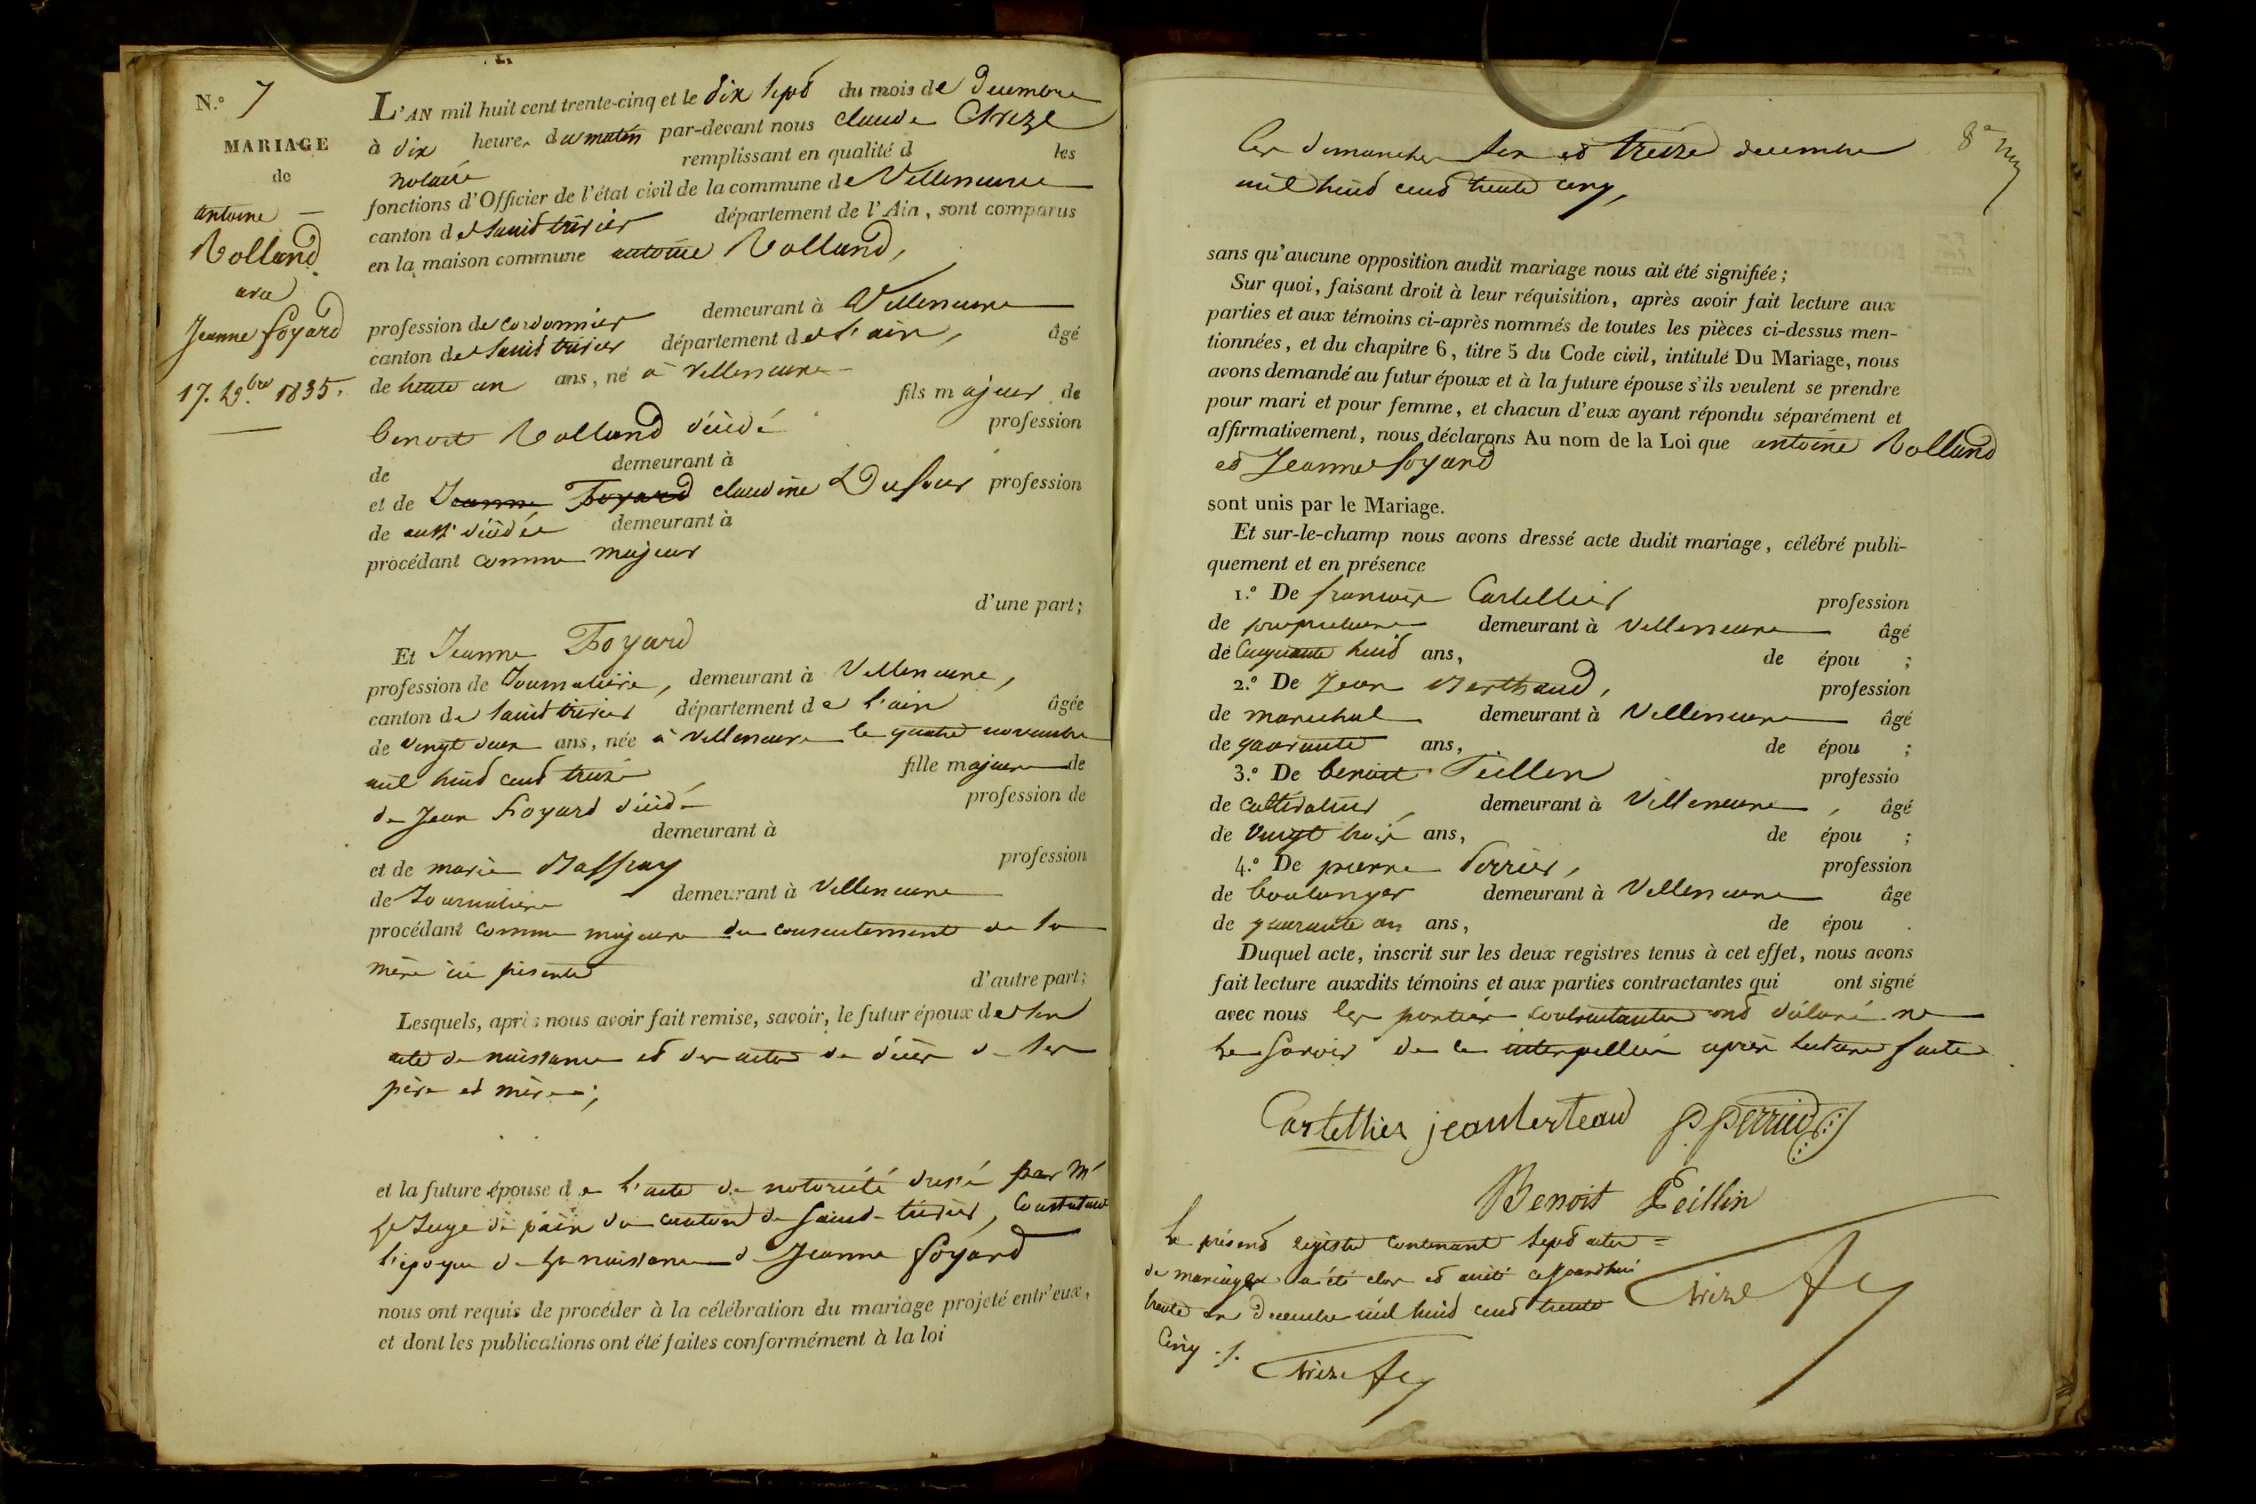 N.º 7
MARIAGE
de
antoine
Rolland
avec
Jeanne foyard
17. 12.bre 1835.
L'AN mil huit cent trente-cinq et le dix sept du mois de Decembre
à dix heures du matin par-devant nous claude
notaire remplissant en qualité d les
fonctions d'Officier de l'état civil de la commune de Villeneuve
canton de saint trivier département de l'Ain, sont comparus
en la maison commune antoine Rolland,
profession de cordonnier demeurant à Villeneuve
canton de saint trivier département de l'ain, âgé
de trente un ans, né à Villeneuve
fils majeur de
benoit Rolland décédé profession
de demeurant à
et de Jeanne Foyard claudine Dufour profession
de aussi décédée demeurant à
procédant comme majeur
d'une part;
Et Jeanne Foyard
profession de Journaliere, demeurant à Villeneuve,
canton de saint trivier département de l'ain âgée
de vingt deux ans, née à Villeneuve le quatre novembre
mil huit cent treize fille majeure de
de Jean Foyard décédé profession de
demeurant à
et de marie profession
de Journaliere demeurant à Villeneuve
procédant comme majeure du consentement de sa
mère ici présente
d'autre part;
Lesquels, après nous avoir fait remise, savoir, le futur époux de son
acte de naissance et des actes de décès de ses
père et mère;
et la future épouse de l'acte de notoriété dressé par Mr
le Juge de paix du canton de saint-trivier, constatant
l'époque de la naissance de Jeanne foyard
nous ont requis de procéder à la célébration du mariage projeté entr'eux,
et dont les publications ont été faites conformément à la loi
les dimanches six et treize decembre
mil huit cent trente cinq,
sans qu'aucune opposition audit mariage nous ait été signifiée;
Sur quoi, faisant droit à leur réquisition, après avoir fait lecture aux
parties et aux témoins ci-après nommés de toutes les pièces ci-dessus men-
tionnées, et du chapitre 6, titre 5 du Code civil, intitulé Du Mariage, nous
avons demandé au futur époux et à la future épouse s'ils veulent se prendre
pour mari et pour femme, et chacun d'eux ayant répondu séparément et
affirmativement, nous déclarons Au nom de la Loi que antoine Rolland
et Jeanne foyard
sont unis par le Mariage.
Et sur-le-champ nous avons dressé acte dudit mariage, célébré publi-
quement et en présence
1.º De francois Cartellier profession
de proprietaire demeurant à Villeneuve âgé
de Cinquante huit ans, de épou ;
2.º De Jean Berthaud, profession
de marechal demeurant à Villeneuve âgé
de quarante ans, de épou ;
3.º De benoit Peillen professio
de cultivateur, demeurant à Villeneuve, âgé
de vingt trois ans, de épou ;
4.º De pierre Perrier, profession
de boulanger demeurant à Villeneuve âge
de quarante un ans, de épou .
Duquel acte, inscrit sur les deux registres tenus à cet effet, nous avons
fait lecture auxdits témoins et aux parties contractantes qui ont signé
avec nous les parties contractantes ont déclaré ne
le savoir de ce interpellées après lecture faite
Cartellier jeanberteaud P perrier
Benoit Peillin
Le présent registre contenant sept actes
de mariages a été clos et arrêté cejourdhui
trente un Decembre mil huit cent trente
Cinq ./.